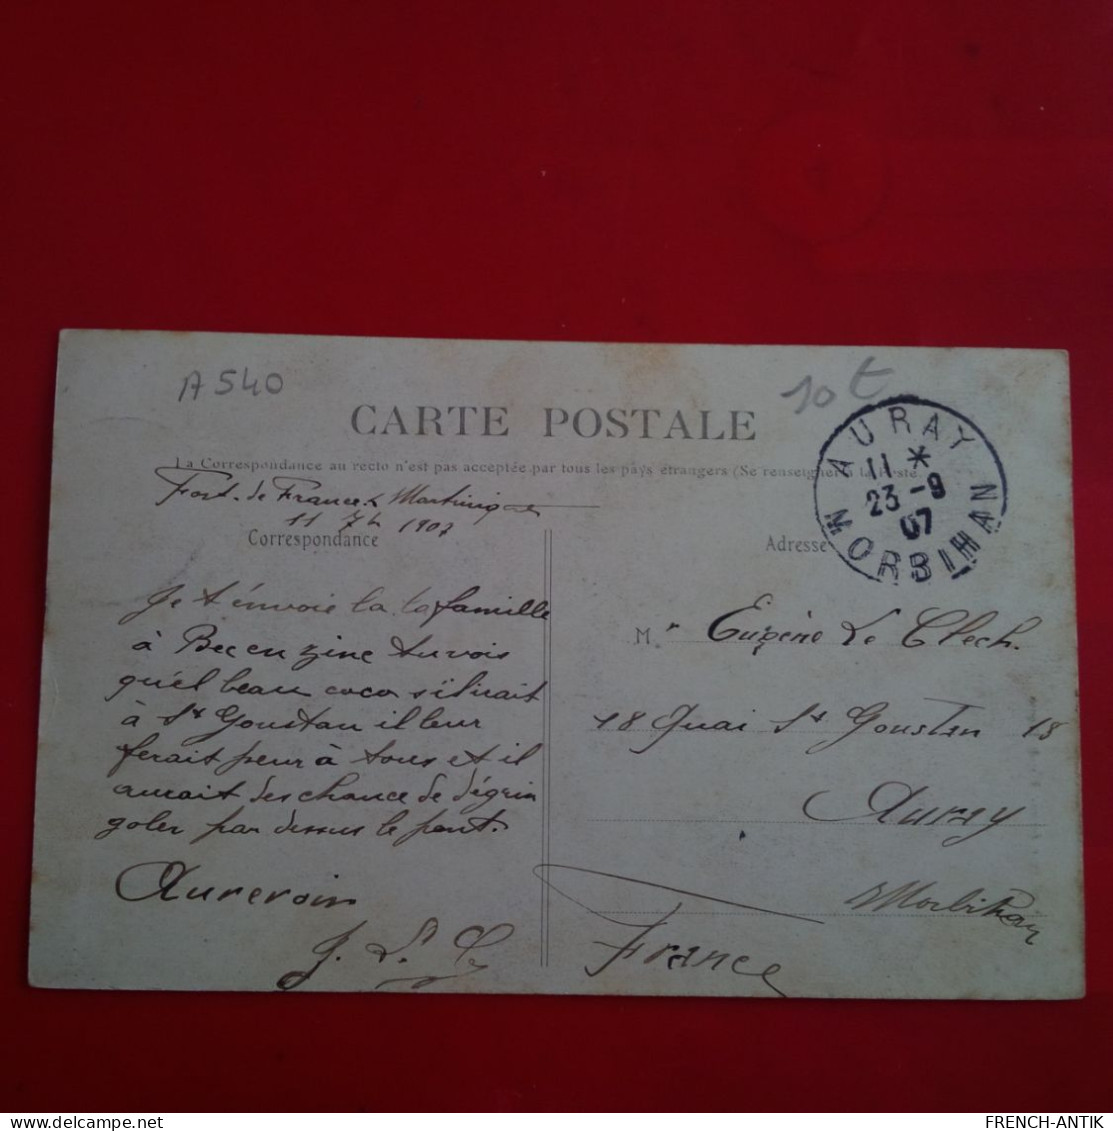 A540
10€
CARTE POSTALE
La Correspondance au recto n'est pas acceptée par tous les pays étrangers (Se renseigner à la Poste
Fort-de-France Martinique
11 7b 1907
Correspondance
Adresse
AURAY
11 *
23 - 9
07
MORBIHAN
Je t'envoie la la famille
à Bec en zinc tu vois
qu'el beau coco s'il irait
à St Goustan il leur
ferait peur à tous et il
aurait des chance de dégrin
goler par dessus le pont.
Aurevoir
J. L. C
M.r Eugène Le Clech.
18 Quai St Goustan 18
Auray
Morbihan
France
delcampe.net
FRENCH-ANTIK